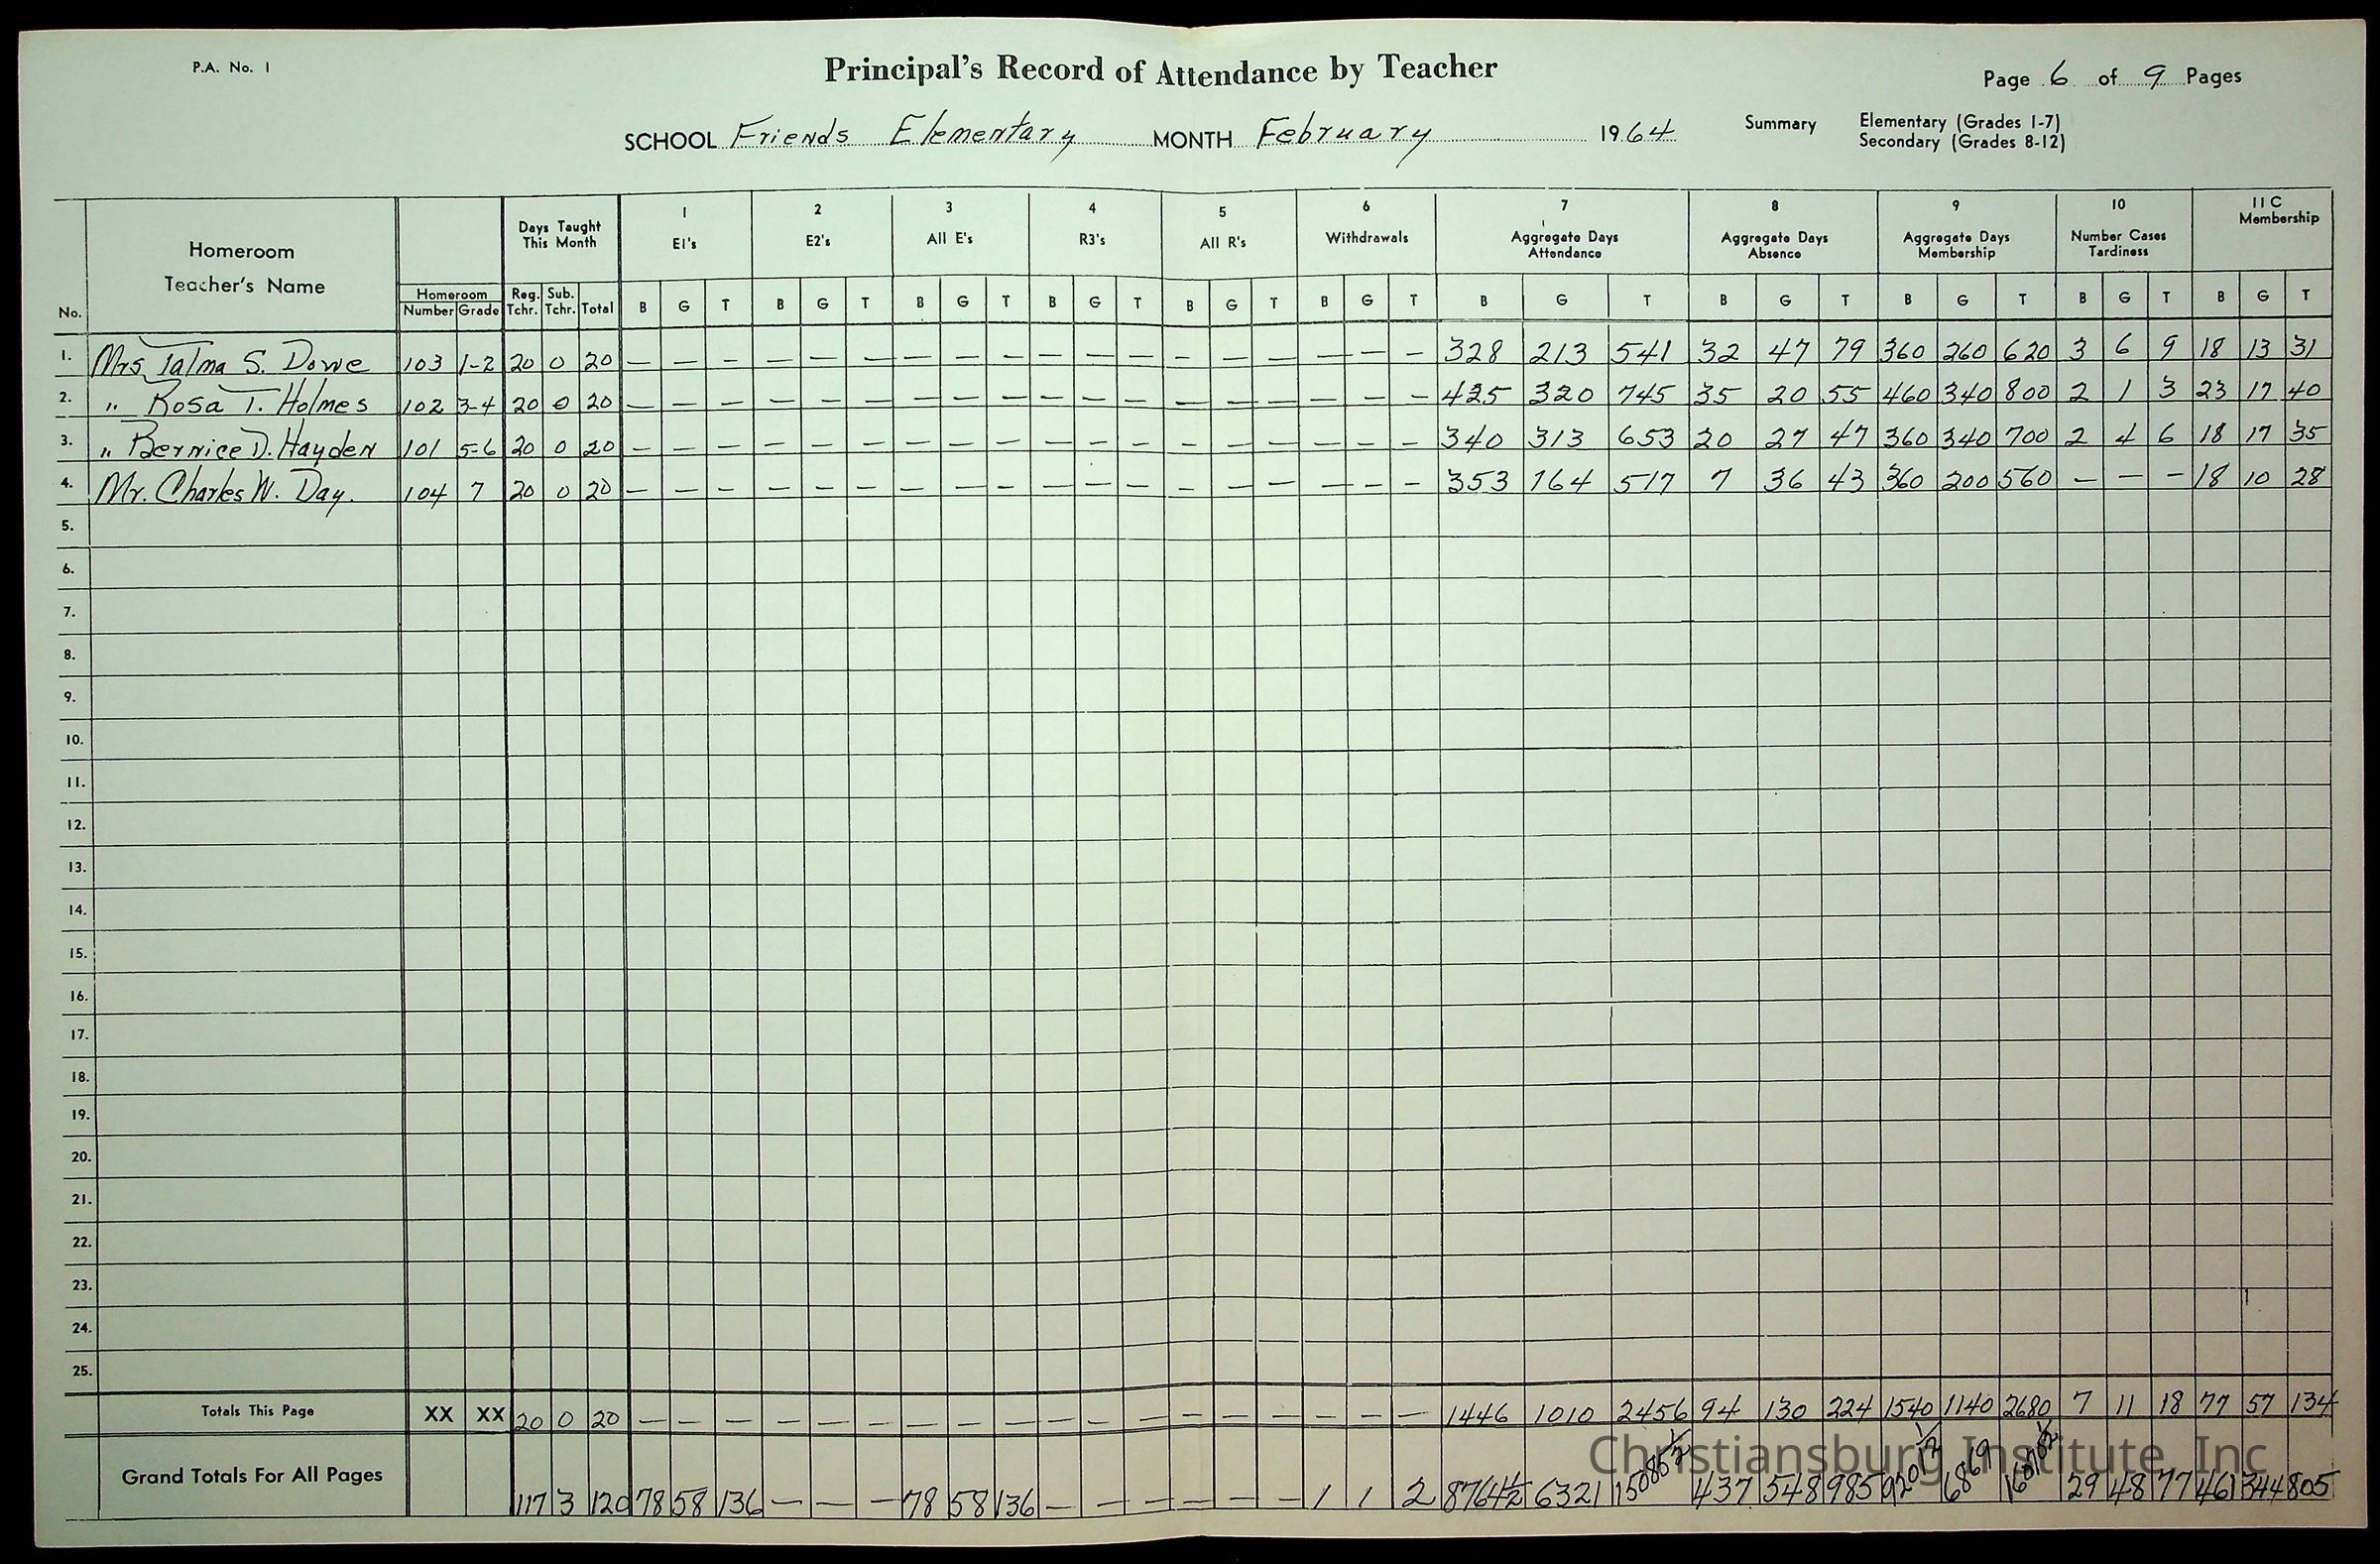 P.A. No. 1
Principal's Record of Attendance by Teacher
Page 6 of 9 Pages
SCHOOL Friends Elementary MONTH February 1964
Summary Elementary (Grades 1-7)
Secondary (Grades 8-12)
No. Homeroom Teacher's Name Homeroom Number Grade Days Taught This Month Reg. Tchr. Sub. Tchr. Total 1 E1's 2 E2's 3 All E's 4 R3's 5 All R's 6 Withdrawals 7 Aggregate Days Attendance 8 Aggregate Days Absence 9 Aggregate Days Membership 10 Number Cases Tardiness 11C Membership
B G T B G T B G T B G T B G T B G T B G T B G T B G T B G T B G T
1. Mrs Talma S. Dowe 103 1-2 20 0 20 — — — — — — — — — — — — — — — — — — 328 213 541 32 47 79 360 260 620 3 6 9 18 13 31
2. " Rosa T. Holmes 102 3-4 20 0 20 — — — — — — — — — — — — — — — — — — 425 320 745 35 20 55 460 340 800 2 1 3 23 17 40
3. " Bernice D. Hayden 101 5-6 20 0 20 — — — — — — — — — — — — — — — — — — 340 313 653 20 27 47 360 340 700 2 4 6 18 17 35
4. Mr. Charles W. Day. 104 7 20 0 20 — — — — — — — — — — — — — — — — — — 353 164 517 7 36 43 360 200 560 — — — 18 10 28
5.
6.
7.
8.
9.
10.
11.
12.
13.
14.
15.
16.
17.
18.
19.
20.
21.
22.
23.
24.
25.
Totals This Page XX XX 20 0 20 — — — — — — — — — — — — — — — — — — 1446 1010 2456 94 130 224 1540 1140 2680 7 11 18 77 57 134
Grand Totals For All Pages 117 3 120 78 58 136 — — — 78 58 136 — — — — — — 1 1 2 8764½ 6321 15085½ 437 548 985 9201½ 6869 29 48 77 461 344 805
Christiansburg Institute, Inc